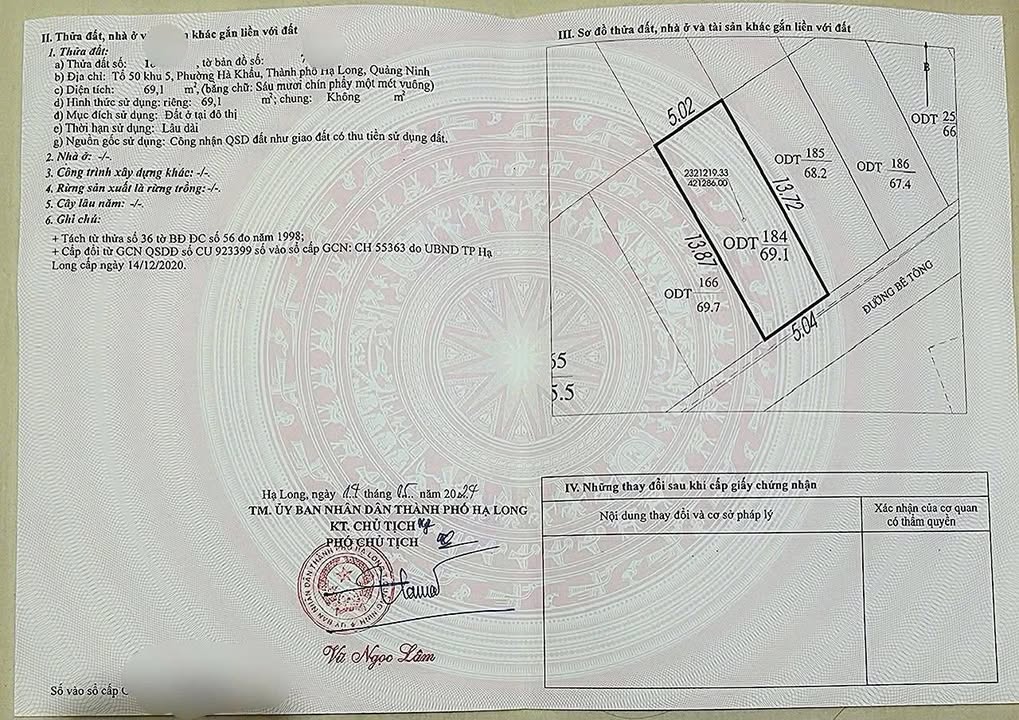 II. Thửa đất, nhà ở v khác gắn liền với đất
1. Thửa đất:
a) Thửa đất số: 18 , tờ bản đồ số:
b) Địa chỉ: Tổ 50 khu 5, Phường Hà Khẩu, Thành phố Hạ Long, Quảng Ninh
c) Diện tích: 69,1 m², (bằng chữ: Sáu mươi chín phẩy một mét vuông)
d) Hình thức sử dụng: riêng: 69,1 m²; chung: Không m²
đ) Mục đích sử dụng: Đất ở tại đô thị
e) Thời hạn sử dụng: Lâu dài
g) Nguồn gốc sử dụng: Công nhận QSD đất như giao đất có thu tiền sử dụng đất.
2. Nhà ở: -/-.
3. Công trình xây dựng khác: -/-.
4. Rừng sản xuất là rừng trồng: -/-.
5. Cây lâu năm: -/-.
6. Ghi chú:
+ Tách từ thửa số 36 tờ BĐ ĐC số 56 đo năm 1998;
+ Cấp đổi từ GCN QSDD số CU 923399 số vào sổ cấp GCN: CH 55363 do UBND TP Hạ
Long cấp ngày 14/12/2020.
Hạ Long, ngày tháng 05 năm 20
TM. ỦY BAN NHÂN DÂN THÀNH PHỐ HẠ LONG
KT. CHỦ TỊCH
PHÓ CHỦ TỊCH
Vũ Ngọc Lâm
Số vào sổ cấp
III. Sơ đồ thửa đất, nhà ở và tài sản khác gắn liền với đất
B
5.02
ODT 25
66
ODT 185
68.2
ODT 186
67.4
2321219.33
421286.00
13.72
13.87
ODT 184
69.1
ODT 166
69.7
5.04
ĐƯỜNG BÊ TÔNG
65
5.5
IV. Những thay đổi sau khi cấp giấy chứng nhận
Nội dung thay đổi và cơ sở pháp lý
Xác nhận của cơ quan
có thẩm quyền